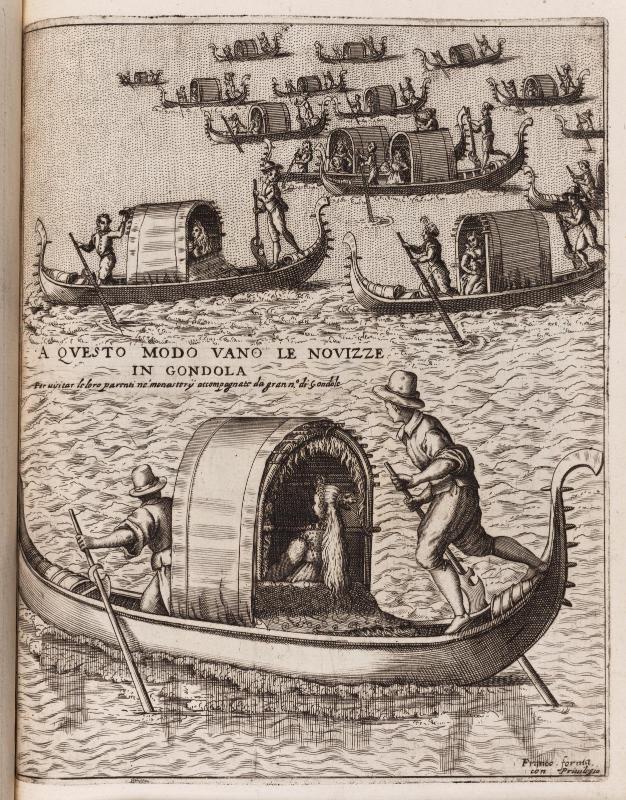 A QVESTO MODO VANO LE NOVIZZE
IN GONDOLA
Per visitar le loro parenti ne monasterÿ accompagnate da gran n.º di Gondole
Franco forma
con Priuilegio